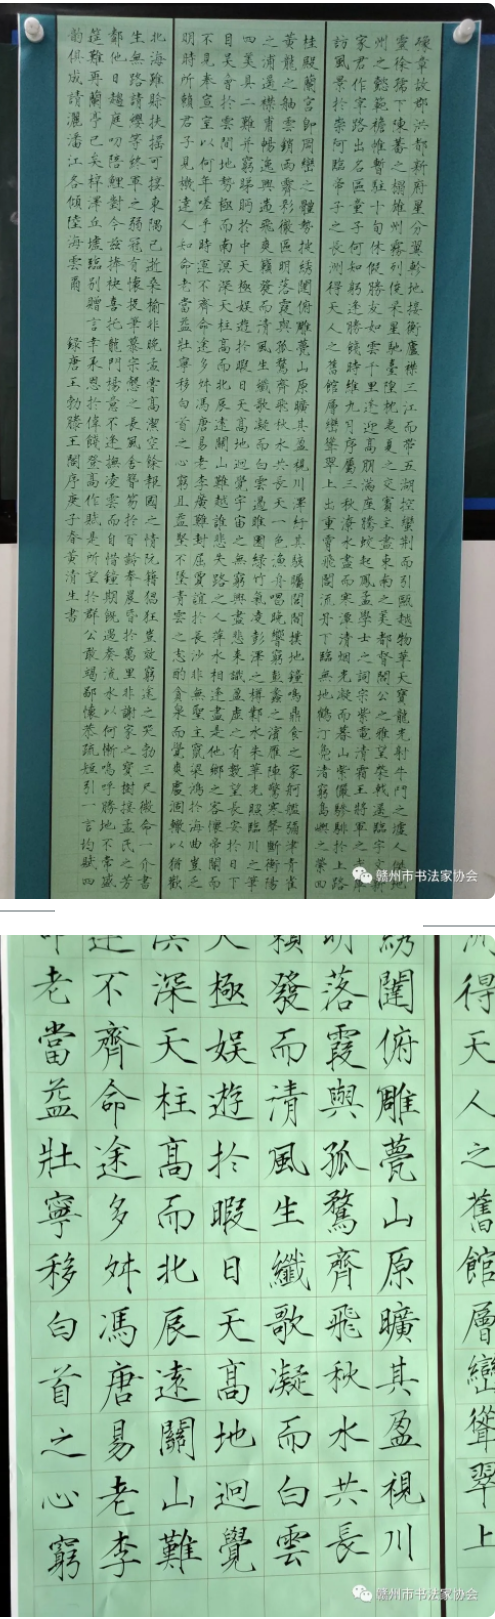 豫章故郡洪都新府星分翼軫地接衡廬襟三江而帶五湖控蠻荊而引甌越物華天寶龍光射牛鬥之墟人傑地
靈徐孺下陳蕃之榻雄州霧列俊采星馳臺隍枕夷夏之交賓主盡東南之美都督閻公之雅望棨戟遙臨宇文新
州之懿範襜帷暫駐十旬休假勝友如雲千里逢迎高朋滿座騰蛟起鳳孟學士之詞宗紫電清霜王將軍之武庫
家君作宰路出名區童子何知躬逢勝餞時維九月序屬三秋潦水盡而寒潭清烟光凝而暮山紫儼驂騑於上路
訪風景於崇阿臨帝子之長洲得天人之舊館層巒聳翠上出重霄飛閣流丹下臨無地鶴汀鳧渚窮島嶼之縈回
桂殿蘭宮即岡巒之體勢披綉闥俯雕甍山原曠其盈視川澤紆其駭矚閭閻撲地鐘鳴鼎食之家舸艦彌津青雀
黃龍之舳雲銷雨霽彩徹區明落霞與孤鶩齊飛秋水共長天一色漁舟唱晚響窮彭蠡之濱雁陣驚寒聲斷衡陽
之浦遥襟甫暢逸興遄飛爽籟發而清風生纖歌凝而白雲遏睢園綠竹氣凌彭澤之樽鄴水朱華光照臨川之筆
四美具二難并窮睇眄於中天極娛遊於暇日天高地迥覺宇宙之無窮興盡悲來識盈虛之有數望長安於日下
目吳會於雲間地勢極而南溟深天柱高而北辰遠關山難越誰悲失路之人萍水相逢盡是他鄉之客懷帝閽而
不見奉宣室以何年嗟乎時運不齊命途多舛馮唐易老李廣難封屈賈誼於長沙非無聖主竄梁鴻於海曲豈乏
明時所賴君子見機達人知命老當益壯寧移白首之心窮且益堅不墜青雲之志酌貪泉而覺爽處涸轍以猶歡
北海雖賒扶搖可接東隅已逝桑榆非晚孟嘗高潔空餘報國之情阮籍猖狂豈效窮途之哭勃三尺微命一介書
生無路請纓等終軍之弱冠有懷投筆慕宗愨之長風舍簪笏於百齡奉晨昏於萬里非謝家之寶樹接孟氏之芳
鄰他日趨庭叨陪鯉對今茲捧袂喜托龍門楊意不逢撫凌雲而自惜鐘期既遇奏流水以何慚嗚呼勝地不常盛
筵難再蘭亭已矣梓澤丘墟臨別贈言幸承恩於偉餞登高作賦是所望於群公敢竭鄙懷恭疏短引一言均賦四
韵俱成請灑潘江各傾陸海雲爾 録唐王勃滕王閣序庚子春黃清生書
赣州市书法家协会
洲得天人之舊館層巒聳翠上
綉闥俯雕甍山原曠其盈視川
明落霞與孤鶩齊飛秋水共長
籟發而清風生纖歌凝而白雲
天極娛遊於暇日天高地迥覺
溟深天柱高而北辰遠關山難
運不齊命途多舛馮唐易老李
命老當益壯寧移白首之心窮
赣州市书法家协会